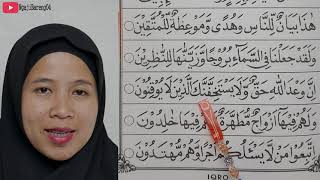 NgajiBareng04
هٰذَا بَيَانٌ لِّلنَّاسِ وَهُدًى وَّمَوْعِظَةٌ لِّلْمُتَّقِيْنَ
وَلَقَدْ جَعَلْنَا فِى السَّمَاۤءِ بُرُوْجًا وَّزَيَّنّٰهَا لِلنّٰظِرِيْنَ
اِنَّ وَعْدَ اللّٰهِ حَقٌّ وَّلَا يَسْتَخِفَّنَّكَ الَّذِيْنَ لَا يُوْقِنُوْنَ
وَلَهُمْ فِيْهَآ اَزْوَاجٌ مُّطَهَّرَةٌ وَّهُمْ فِيْهَا خٰلِدُوْنَ
اتَّبِعُوْا مَنْ لَّا يَسْـَٔلُكُمْ اَجْرًا وَّهُمْ مُّهْتَدُوْنَ